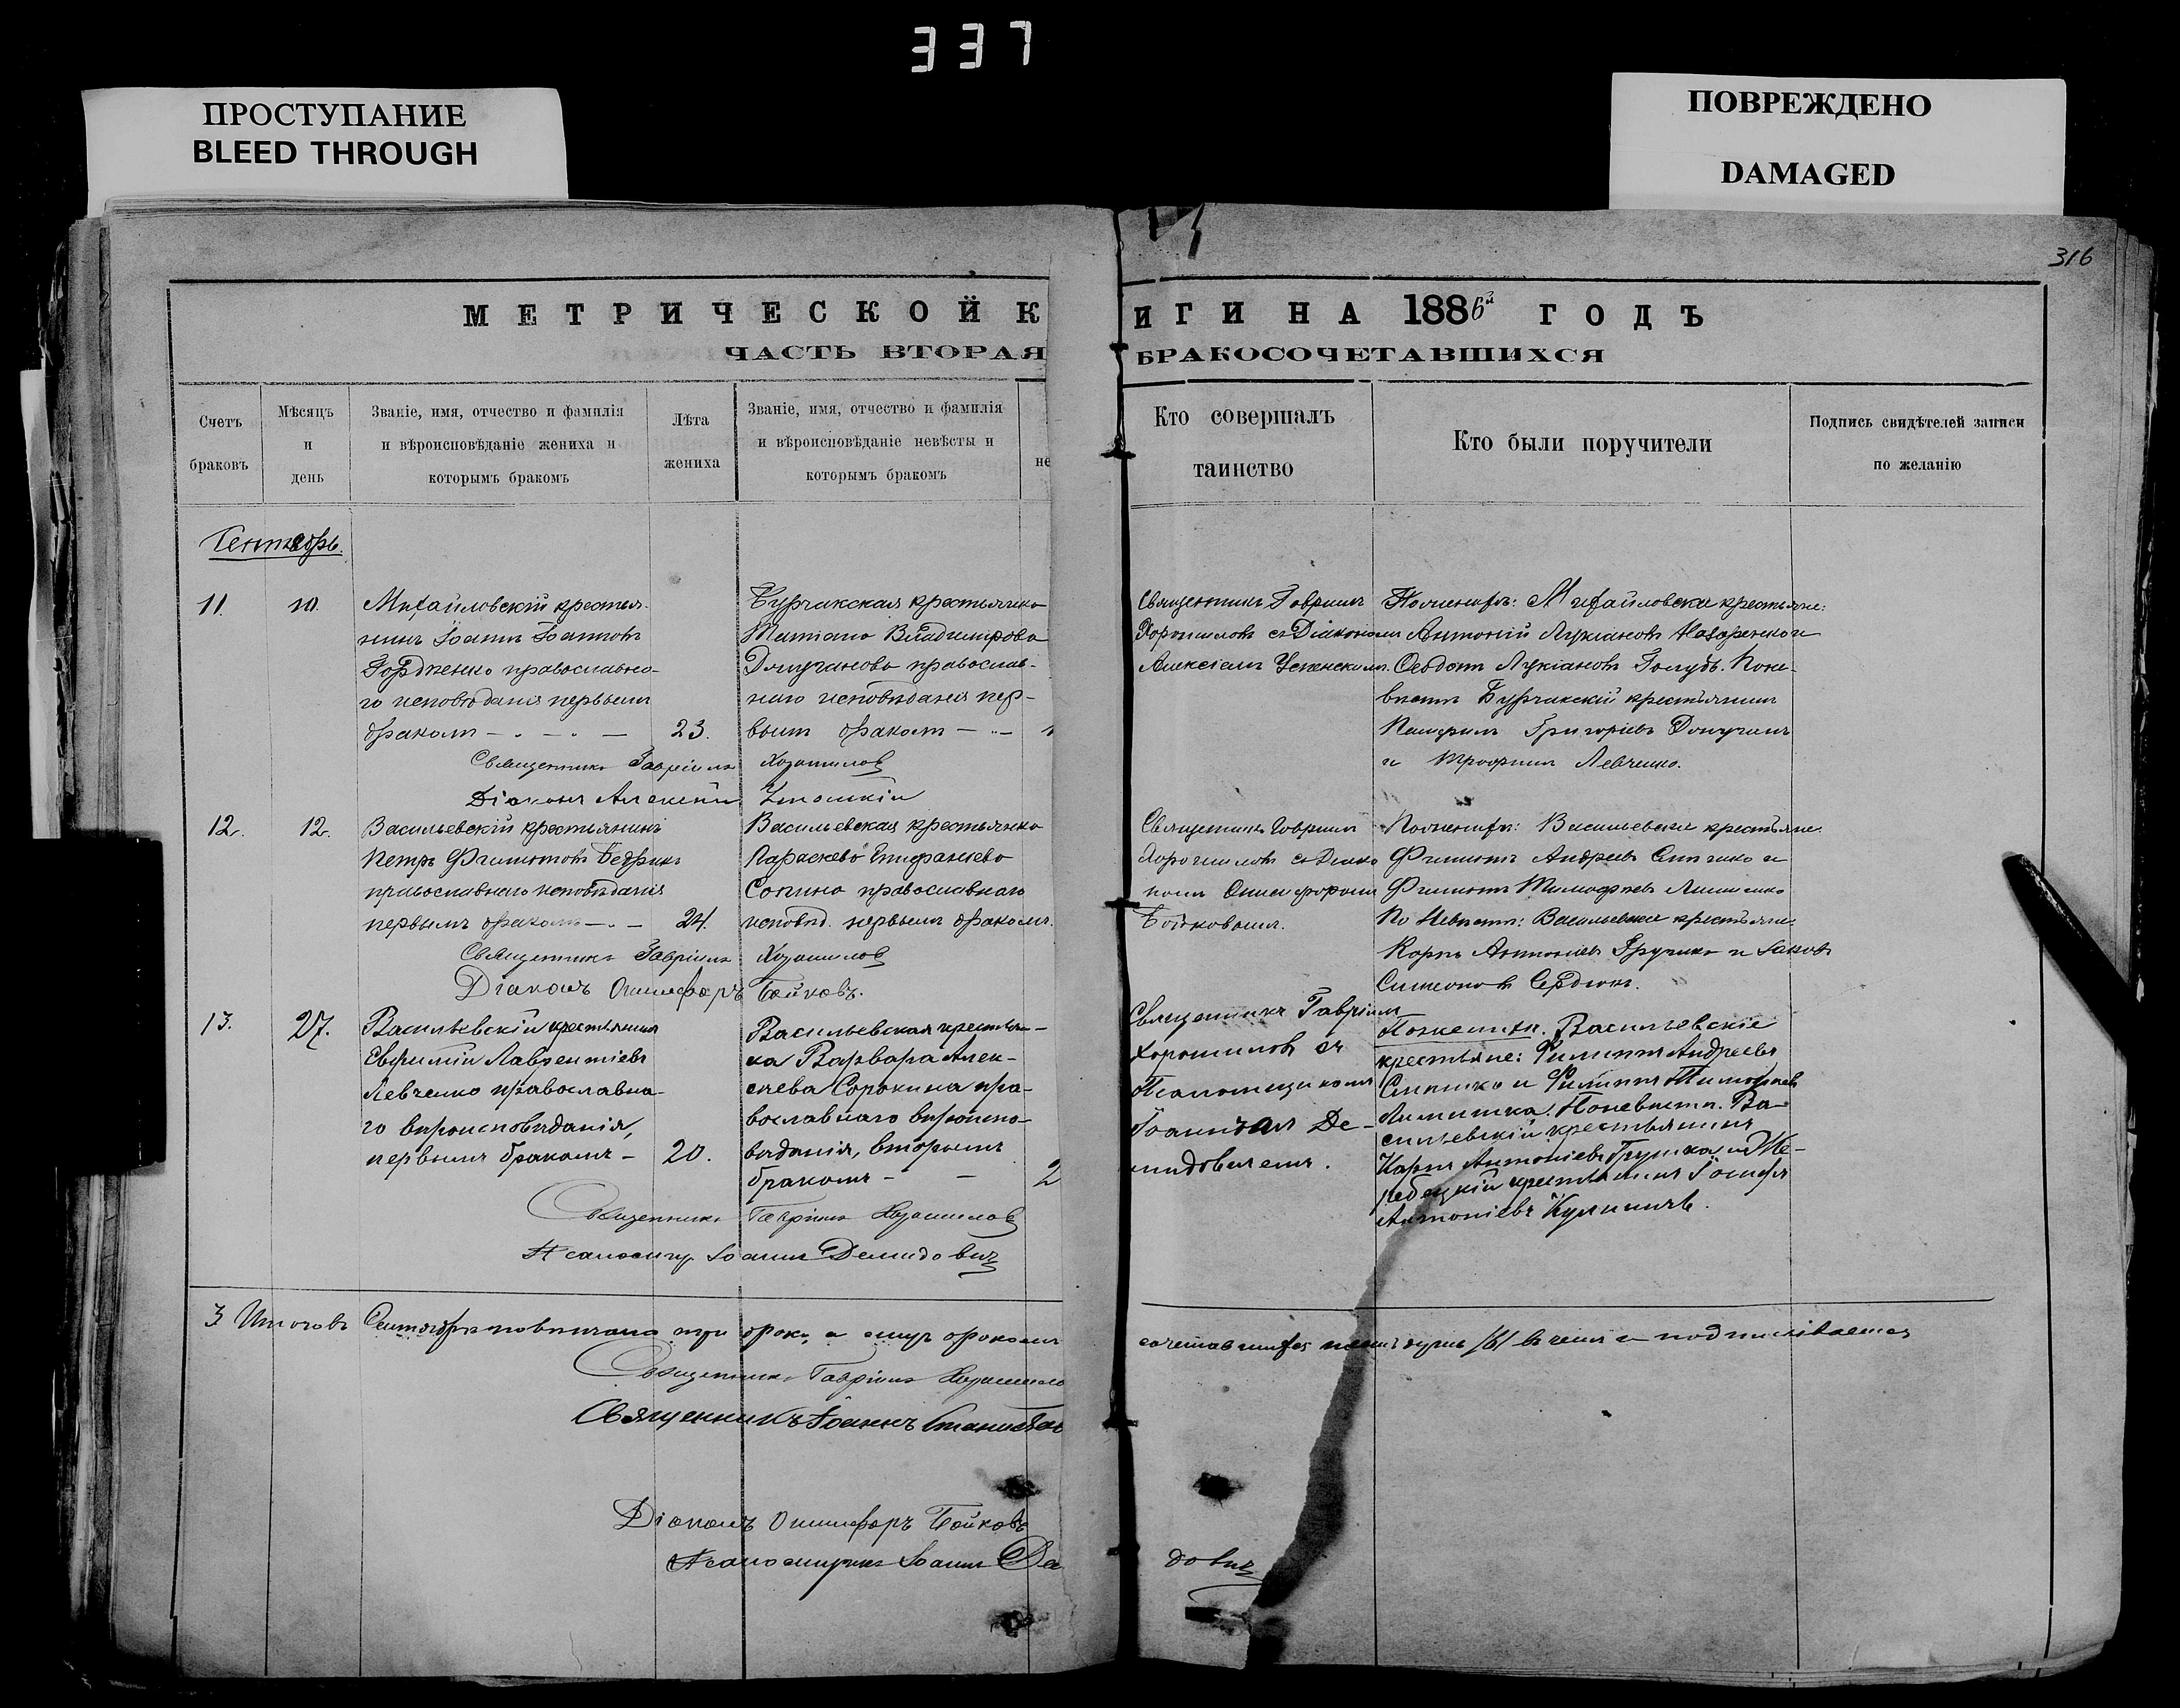 337
ПРОСТУПАНИЕ
BLEED THROUGH
ПОВРЕЖДЕНО
DAMAGED
316
МЕТРИЧЕСКОЙ К
ИГИ НА 1886й ГОДЪ
ЧАСТЬ ВТОРАЯ
БРАКОСОЧЕТАВШИХСЯ
Счетъ
браковъ
Мѣсяцъ
и
день
Званіе, имя, отчество и фамилія
и вѣроисповѣданіе жениха и
которымъ бракомъ
Лѣта
жениха
Званіе, имя, отчество и фамилія
и вѣроисповѣданіе невѣсты и
которымъ бракомъ
не
Кто совершалъ
таинство
Кто были поручители
Подпись свидѣтелей записи
по желанію
Сентябрь.
11.
10.
Михайловскій крестья-
нинъ Іоаннъ Іоанновъ
Гордіенко православна-
го исповѣданія первымъ
бракомъ
23.
Бурчакская крестьянка
Татіана Владимірова
православ-
наго исповѣданія пер-
вымъ бракомъ
Священникъ Гавріилъ
Хорошиловъ съ Діакономъ
Алексіемъ Успенскимъ.
По женихѣ: Михайловскіе крестьяне:
Антоній Лукіановъ Назаренко и
Ѳеодотъ Лукіановъ Голубъ. По не-
вѣстѣ Бурчакскій крестьянинъ
Григоріевъ
и Трофимъ Левченко.
Священникъ Гавріилъ Хорошиловъ
Діаконъ Алексій
12.
12.
Васильевскій крестьянинъ
Петръ Филиповъ
православнаго исповѣданія
первымъ бракомъ
24.
Васильевская крестьянка
Параскева Епифаніева
Сопина православнаго
исповѣд. первымъ бракомъ.
Священникъ Гавріилъ
Хорошиловъ съ Діако
номъ Онисифоромъ
Бойковымъ.
По женихѣ: Васильевскіе крестьяне
Филиппъ Андреевъ и
Филиппъ Тимофѣевъ
По невѣстѣ: Васильевскіе крестьяне
Карпъ Антоніевъ и Іаковъ
Симеоновъ Сердюкъ.
Священникъ Гавріилъ Хорошиловъ
Діаконъ Онисифоръ Бойковъ.
13.
27.
Васильевскій крестьянинъ
Евфимій Лаврентіевъ
Левченко православна-
го вѣроисповѣданія,
первымъ бракомъ -
20.
Васильевская крестьян-
ка Варвара Алек-
сѣева Сорокина пра-
вославнаго вѣроиспо-
вѣданія, вторымъ
бракомъ -
2
Священникъ Гавріилъ
Хорошиловъ съ
Псаломщикомъ
Іоанномъ Де-
мидовичемъ.
По женихѣ. Васильевскіе
крестьяне: Филиппъ Андреевъ
и Филиппъ Тимофѣевъ
По невѣстѣ. Ва-
сильевскій крестьянинъ
Карпъ Антоніевъ и Же-
ребецкій крестьянинъ Іосифъ
Антоніевъ
Священникъ Гавріилъ Хорошиловъ
Псаломщ. Іоаннъ Демидовичъ
3 Итого въ Сентябрѣ повѣнчано три брака, а бракомъ
сочетавшихся шесть душъ /6/ въ чемъ и подписываемся
Священникъ Гавріилъ Хорошило
Священникъ Іоаннъ
Діаконъ Онисифоръ Бойковъ
Псаломщикъ Іоаннъ Де
довичъ